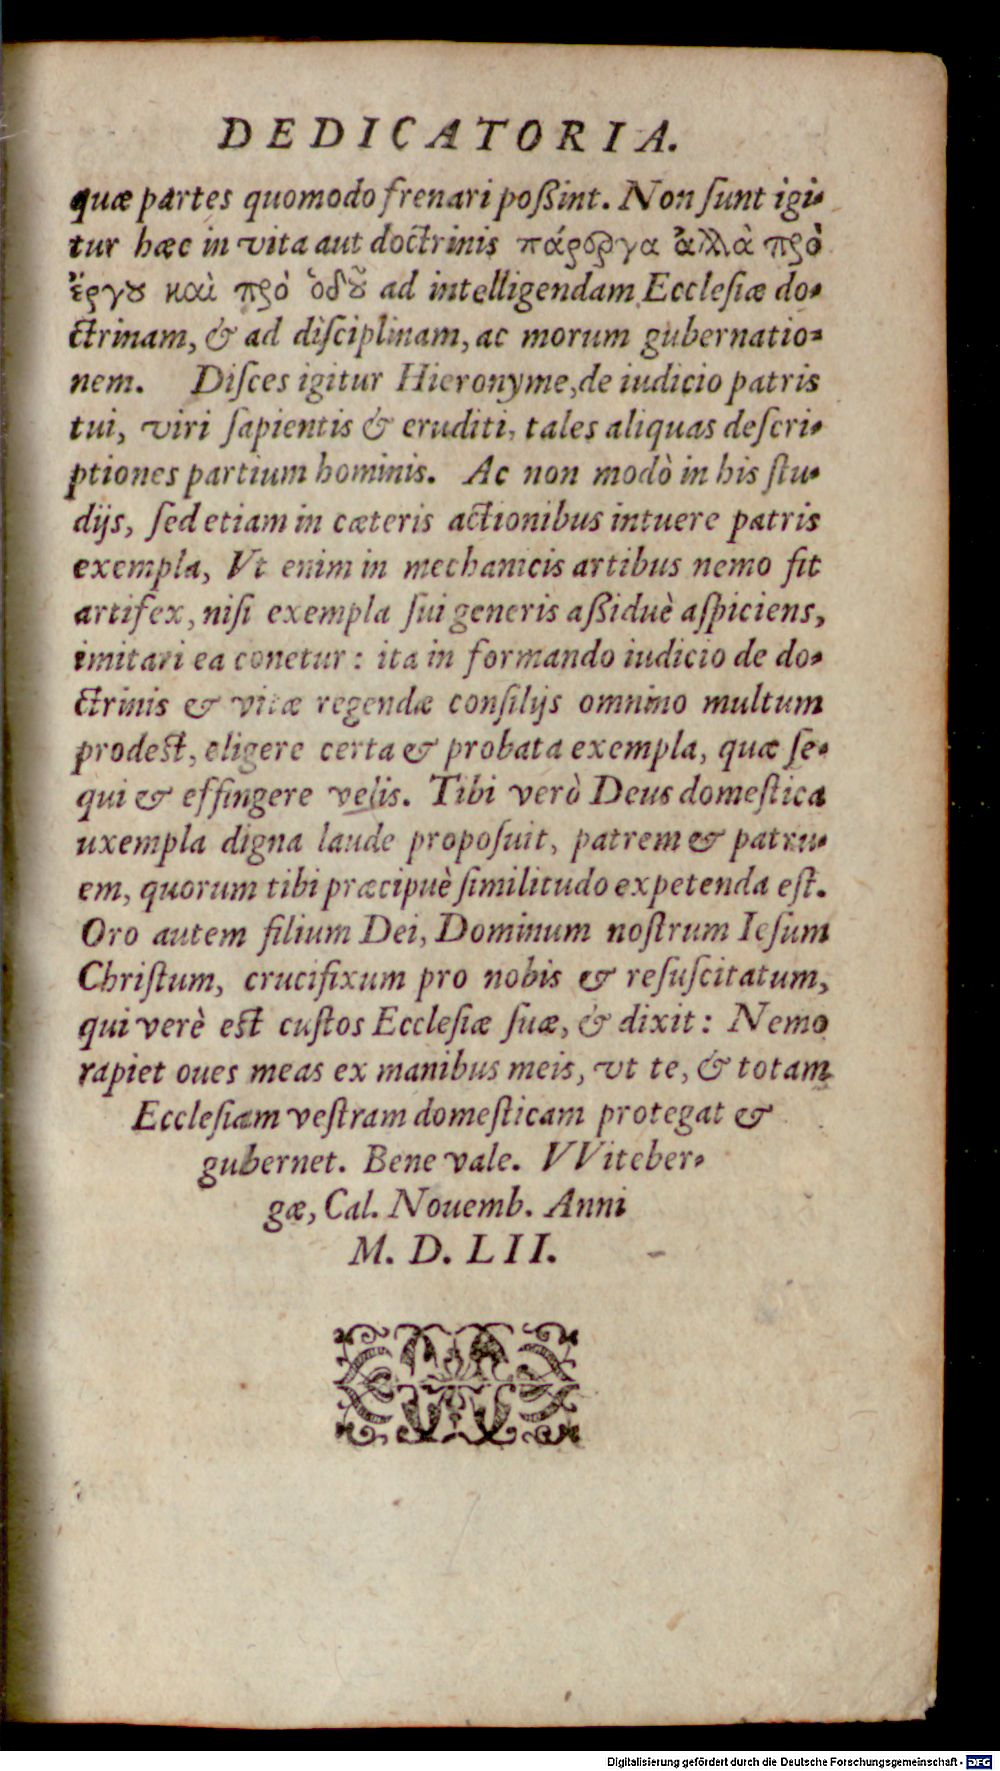 DEDICATORIA.
quæ partes quomodo frenari poßint. Non ſunt igi-
tur hæc in vita aut doctrinis πάρεργα ἀλλὰ πρὸ
ἔργου καὶ πρὸ ὁδοῦ ad intelligendam Eccleſiæ do-
ctrinam, & ad diſciplinam, ac morum gubernatio-
nem. Diſces igitur Hieronyme, de iudicio patris
tui, viri ſapientis & eruditi, tales aliquas deſcri-
ptiones partium hominis. Ac non modò in his ſtu-
dijs, ſed etiam in cæteris actionibus intuere patris
exempla, Vt enim in mechanicis artibus nemo fit
artifex, niſi exempla ſui generis aßiduè aſpiciens,
imitari ea conetur: ita in formando iudicio de do-
ctrinis & vitæ regendæ conſilijs omnino multum
prodeſt, eligere certa & probata exempla, quæ ſe-
qui & effingere velis. Tibi verò Deus domeſtica
uxempla digna laude propoſuit, patrem & patru-
em, quorum tibi præcipuè ſimilitudo expetenda eſt.
Oro autem filium Dei, Dominum noſtrum Ieſum
Chriſtum, crucifixum pro nobis & reſuſcitatum,
qui verè eſt cuſtos Eccleſiæ ſuæ, & dixit: Nemo
rapiet oues meas ex manibus meis, vt te, & totam
Eccleſiam veſtram domeſticam protegat &
gubernet. Bene vale. VViteber-
gæ, Cal. Nouemb. Anni
M. D. LII.
Digitalisierung gefördert durch die Deutsche Forschungsgemeinschaft - DFG